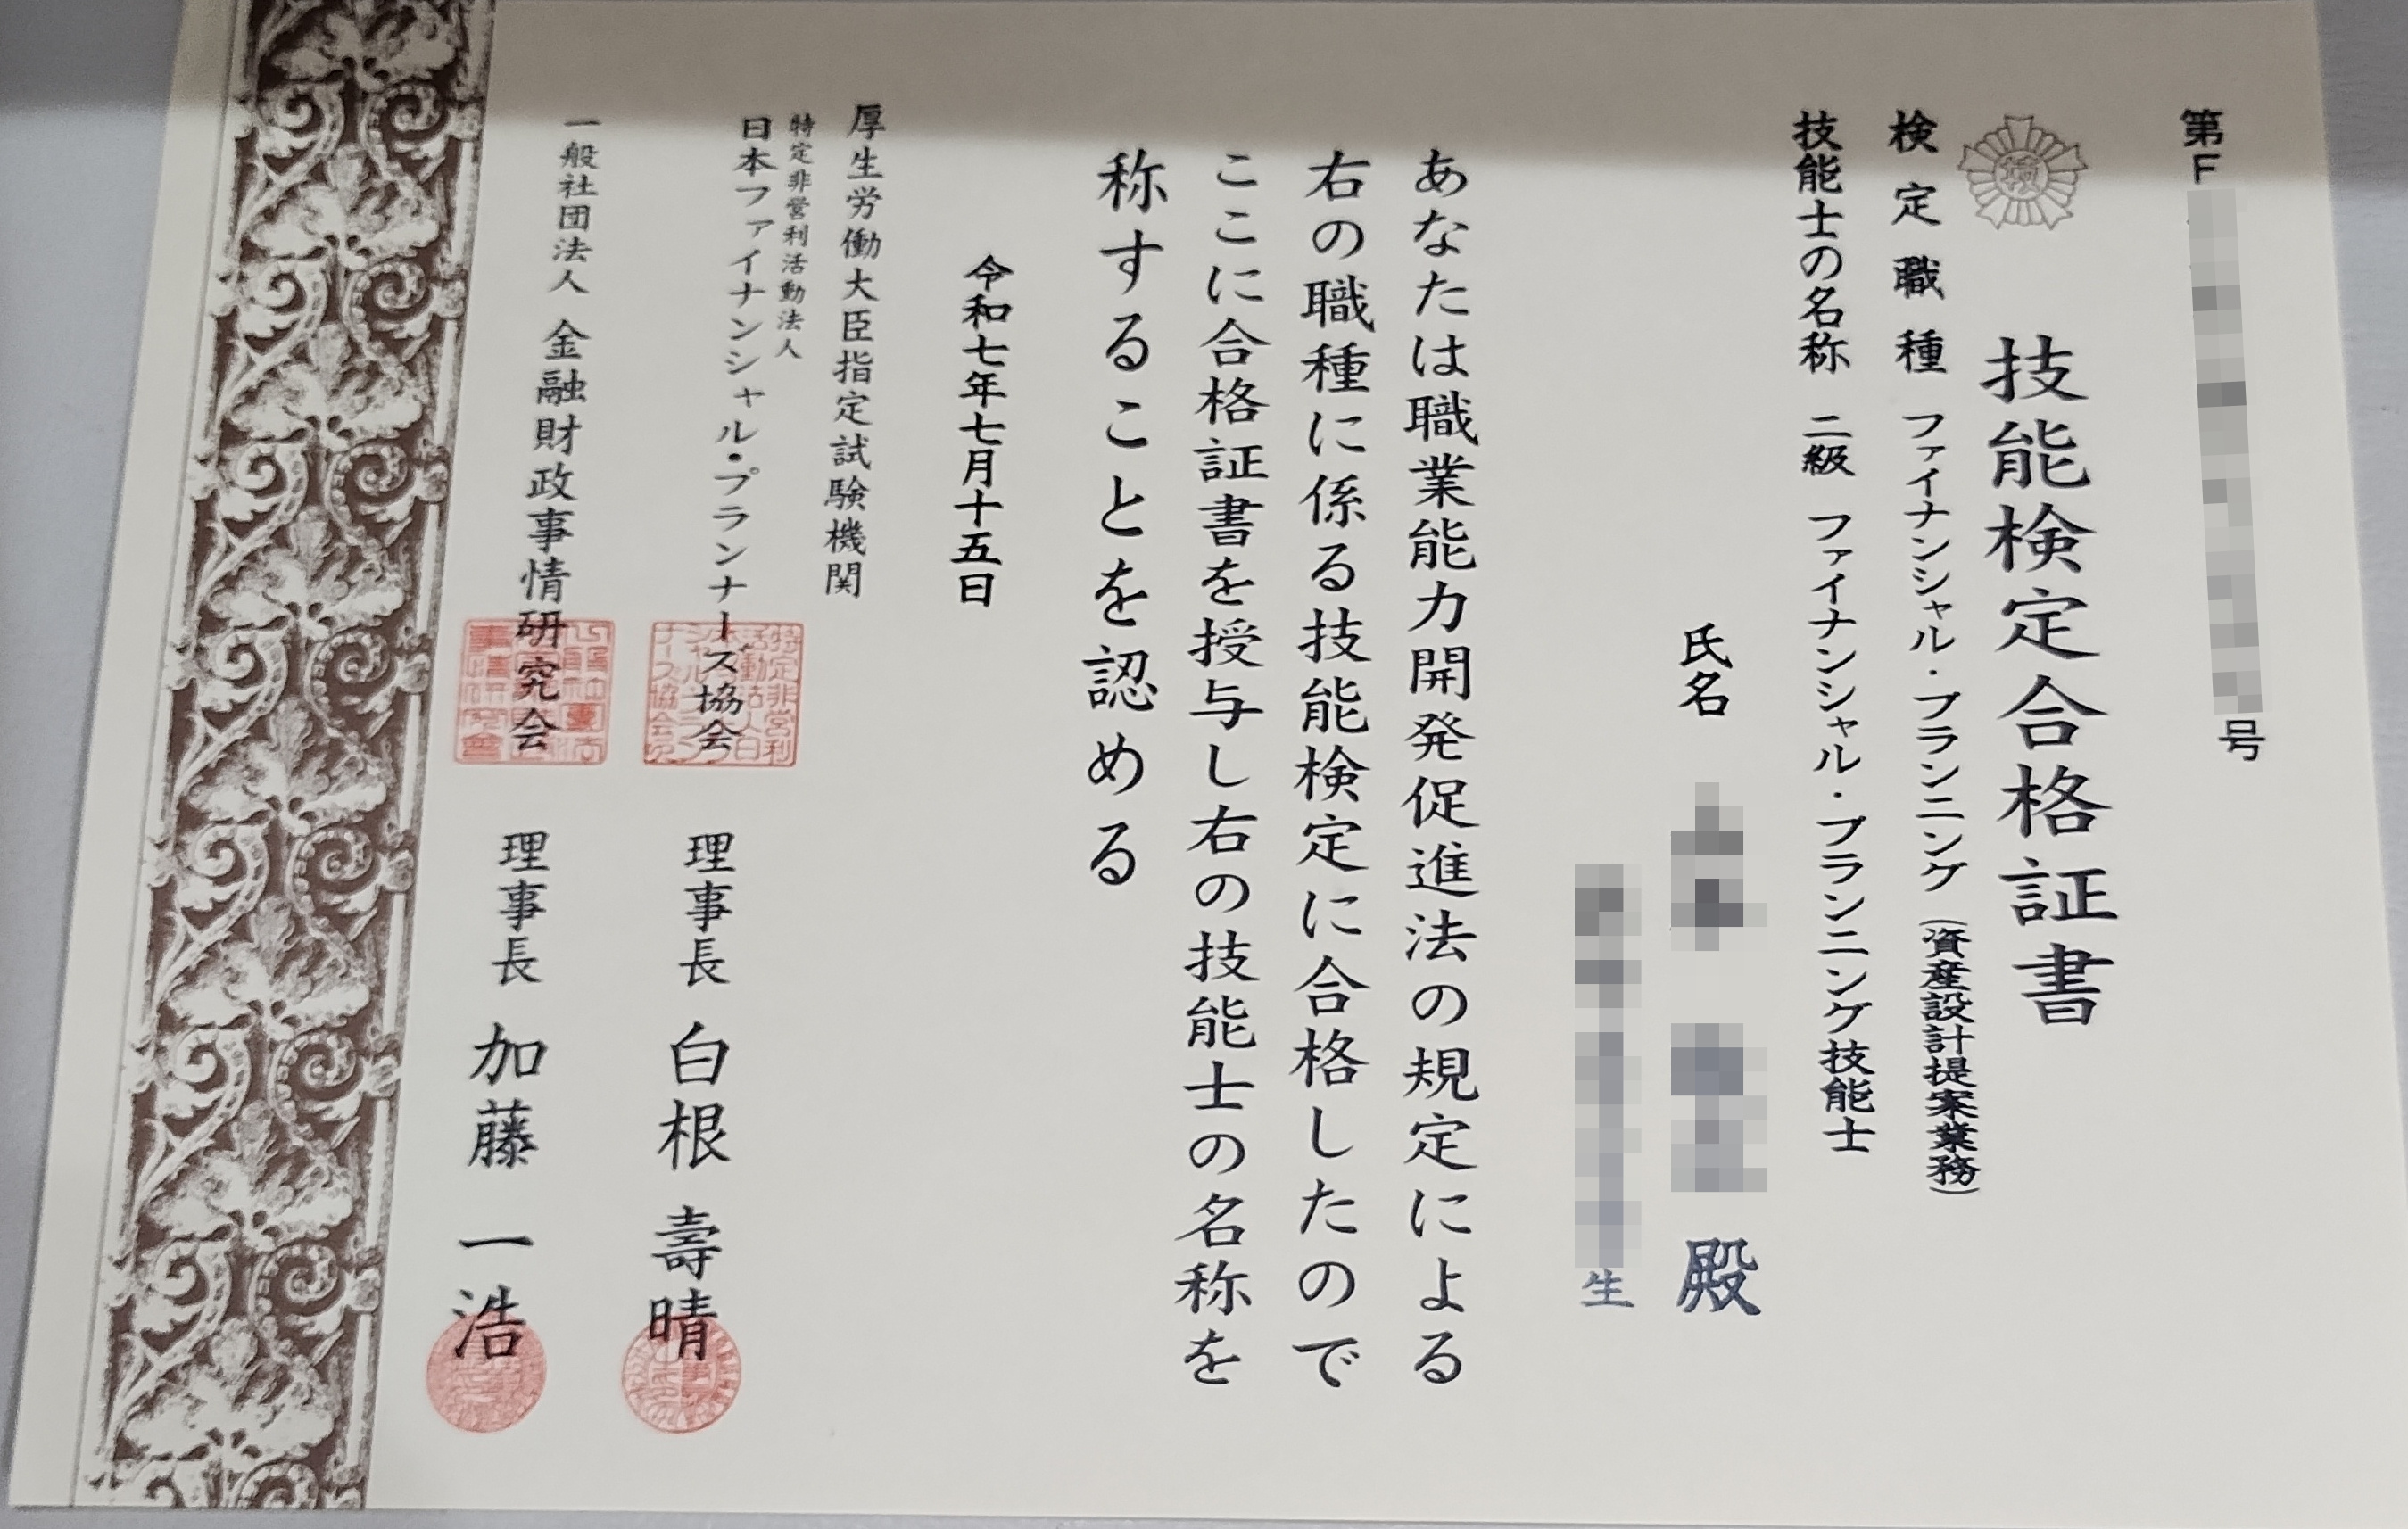 第F号
技能検定合格証書
検定職種 ファイナンシャル・プランニング（資産設計提案業務）
技能士の名称 二級 ファイナンシャル・プランニング技能士
氏名 殿
生
あなたは職業能力開発促進法の規定による
右の職種に係る技能検定に合格したので
ここに合格証書を授与し右の技能士の名称を
称することを認める
令和七年七月十五日
厚生労働大臣指定試験機関
特定非営利活動法人
日本ファイナンシャル・プランナーズ協会 理事長 白根壽晴
一般社団法人 金融財政事情研究会 理事長 加藤一浩